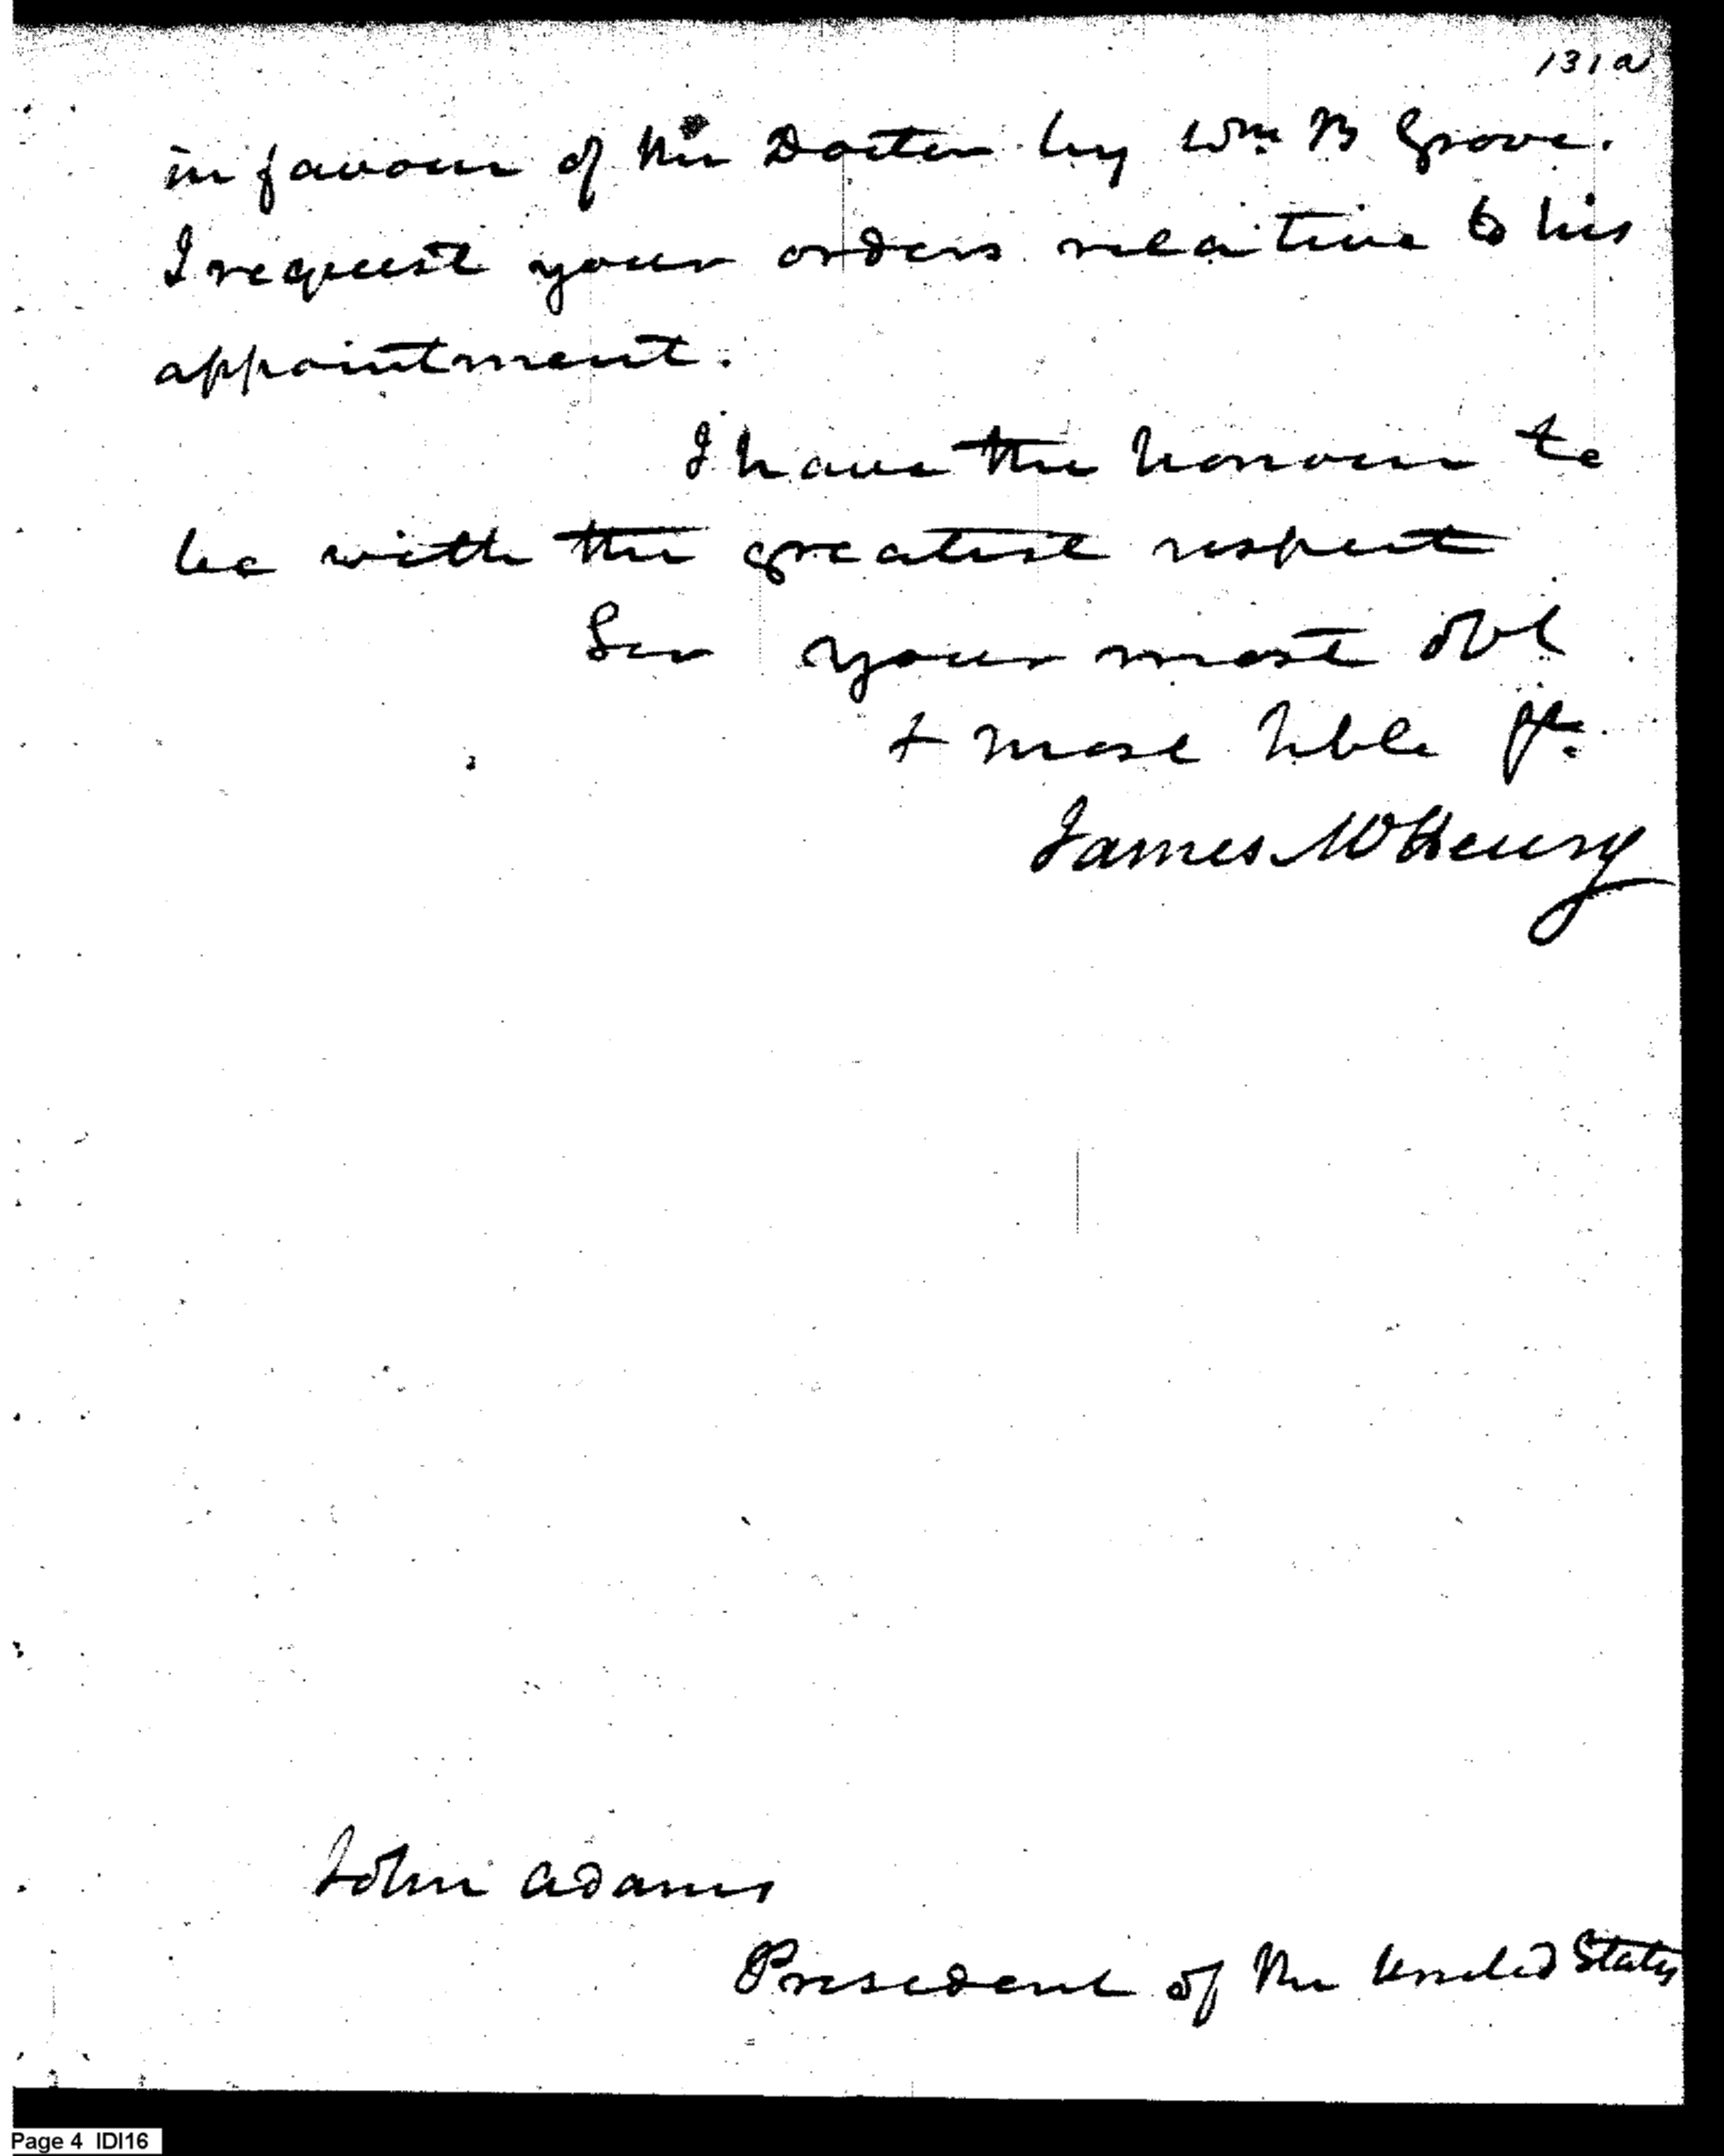 131a
in favour of the Doctor by Wm B Grove.
I request your orders relative to his
appointment.
I have the honour to
be with the greatest respect
Sir your most obt
& most hble
James McHenry
John Adams
President of the United States
Page 4 IDI16